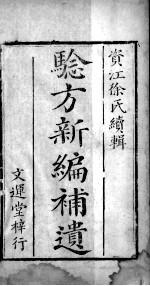 資江徐氏續輯
驗方新編補遺
文運堂梓行